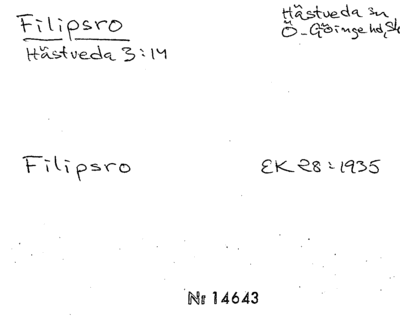 Filipsro
Hästveda 3:14
Hästveda sn
Ö-Göinge hd, Sk
Filipsro
EK 28:1935
Nr 14643